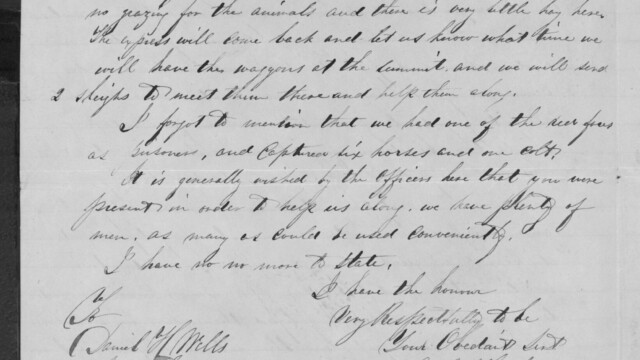 no grazing for the animals and there is very little hay here.
The express will come back and let us know what time we
will have the waggons at the summit and we will send
2 sleighs to meet them there and help them along.
I forgot to mention that we had one of the
as prisoners, and captured six horses and one colt.
It is generally wished by the officers here that you were
present in order to help us along. we have plenty of
men. as many as could be used conveniently.
I have no no more to state.
I have the honour
To Very Respectfully to be
Daniel H. Wells Your Obedient Svnt